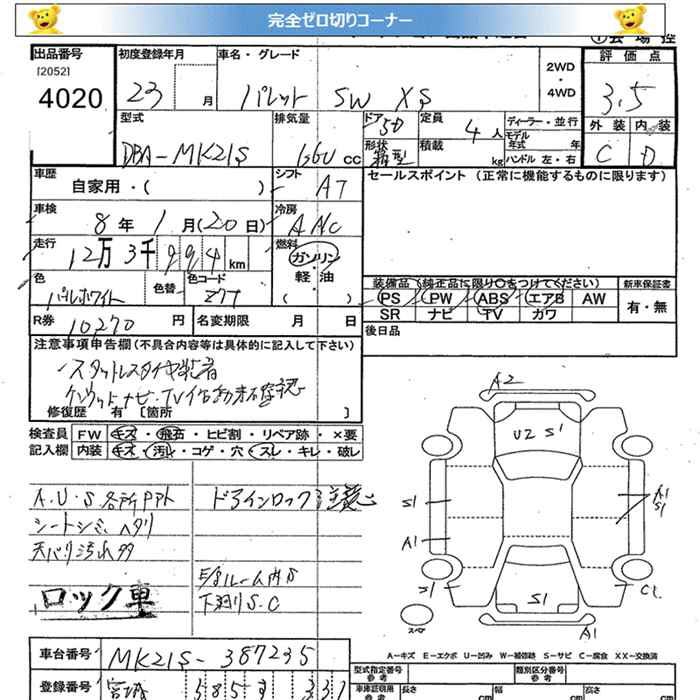 完全ゼロ切りコーナー
出品番号 初度登録年月 車名・グレード 評価点
[2052]
4020 23 月 パレット SW XS 2WD・4WD 3.5
型式 排気量 ドア 5D 定員 4人 ディーラー・並行 外装 内装
DBA-MK21S 660 cc 形状 箱型 積載 kg モデル年式 年 ハンドル 左・右 C D
車歴 自家用・( ) シフト AT セールスポイント (正常に機能するものに限ります)
車検 8年 1月(20日) 冷房 AAC
走行 12万3千994km 燃料 ガソリン・軽・油 ( )
色 パールホワイト 色替 色コード Z7T
装備品 (純正品に限り○をつけてください) 新車保証書
PS PW ABS エアB AW 有・無
SR ナビ TV カワ
R券 10270円 名変期限 月 日 後日品
注意事項申告欄 (不具合内容等は具体的に記入して下さい)
スタットレスタイヤ装着
修復歴 有 [箇所 ]
検査員 FW キズ・飛石・ヒビ割・リペア跡・×要
記入欄 内装 キズ・汚れ・コゲ・穴・スレ・キレ・破レ
A.U.S各所 ドアインロック注意
シートシミ、ヘタリ
天バリ汚れ多
下廻りS.C
ロック車
A2
U2 S1
S1
A1
S1
A1
S1
C1
S1
A1
スペア
A-キズ E-エクボ U-凹み W-補修跡 S-サビ C-腐食 XX-交換済
車台番号 MK21S-387235
登録番号 宮城
型式指定番号 参考 類別区分番号 参考
車庫証明用 参考 長さ cm 幅 cm 高さ cm